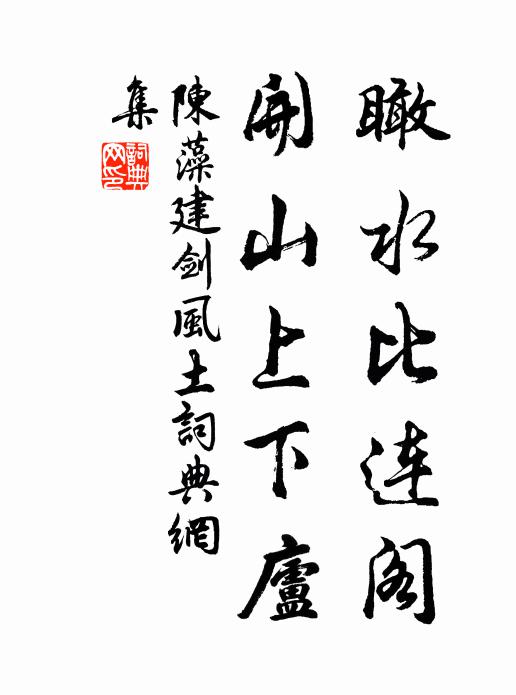 瞰水比連閣
開山上下廬
陳藻建劍風土詞典網
集
詞典網印